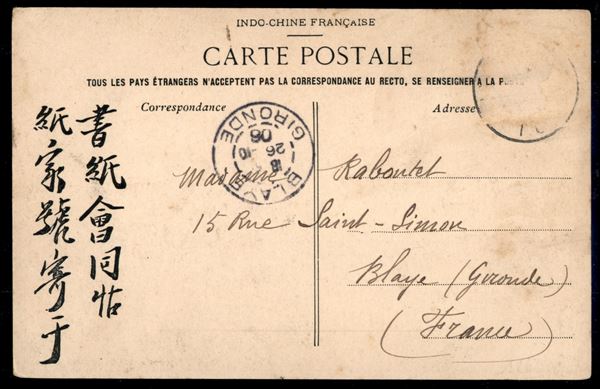 INDO-CHINE FRANÇAISE
CARTE POSTALE
TOUS LES PAYS ÉTRANGERS N'ACCEPTENT PAS LA CORRESPONDANCE AU RECTO, SE RENSEIGNER A LA
Correspondance
Adresse
BLAYE
26
06
GIRONDE
Madame Raboutet
15 Rue Saint-Simon
Blaye (Gironde)
(France)
書紙會同帖
紙家號寄于